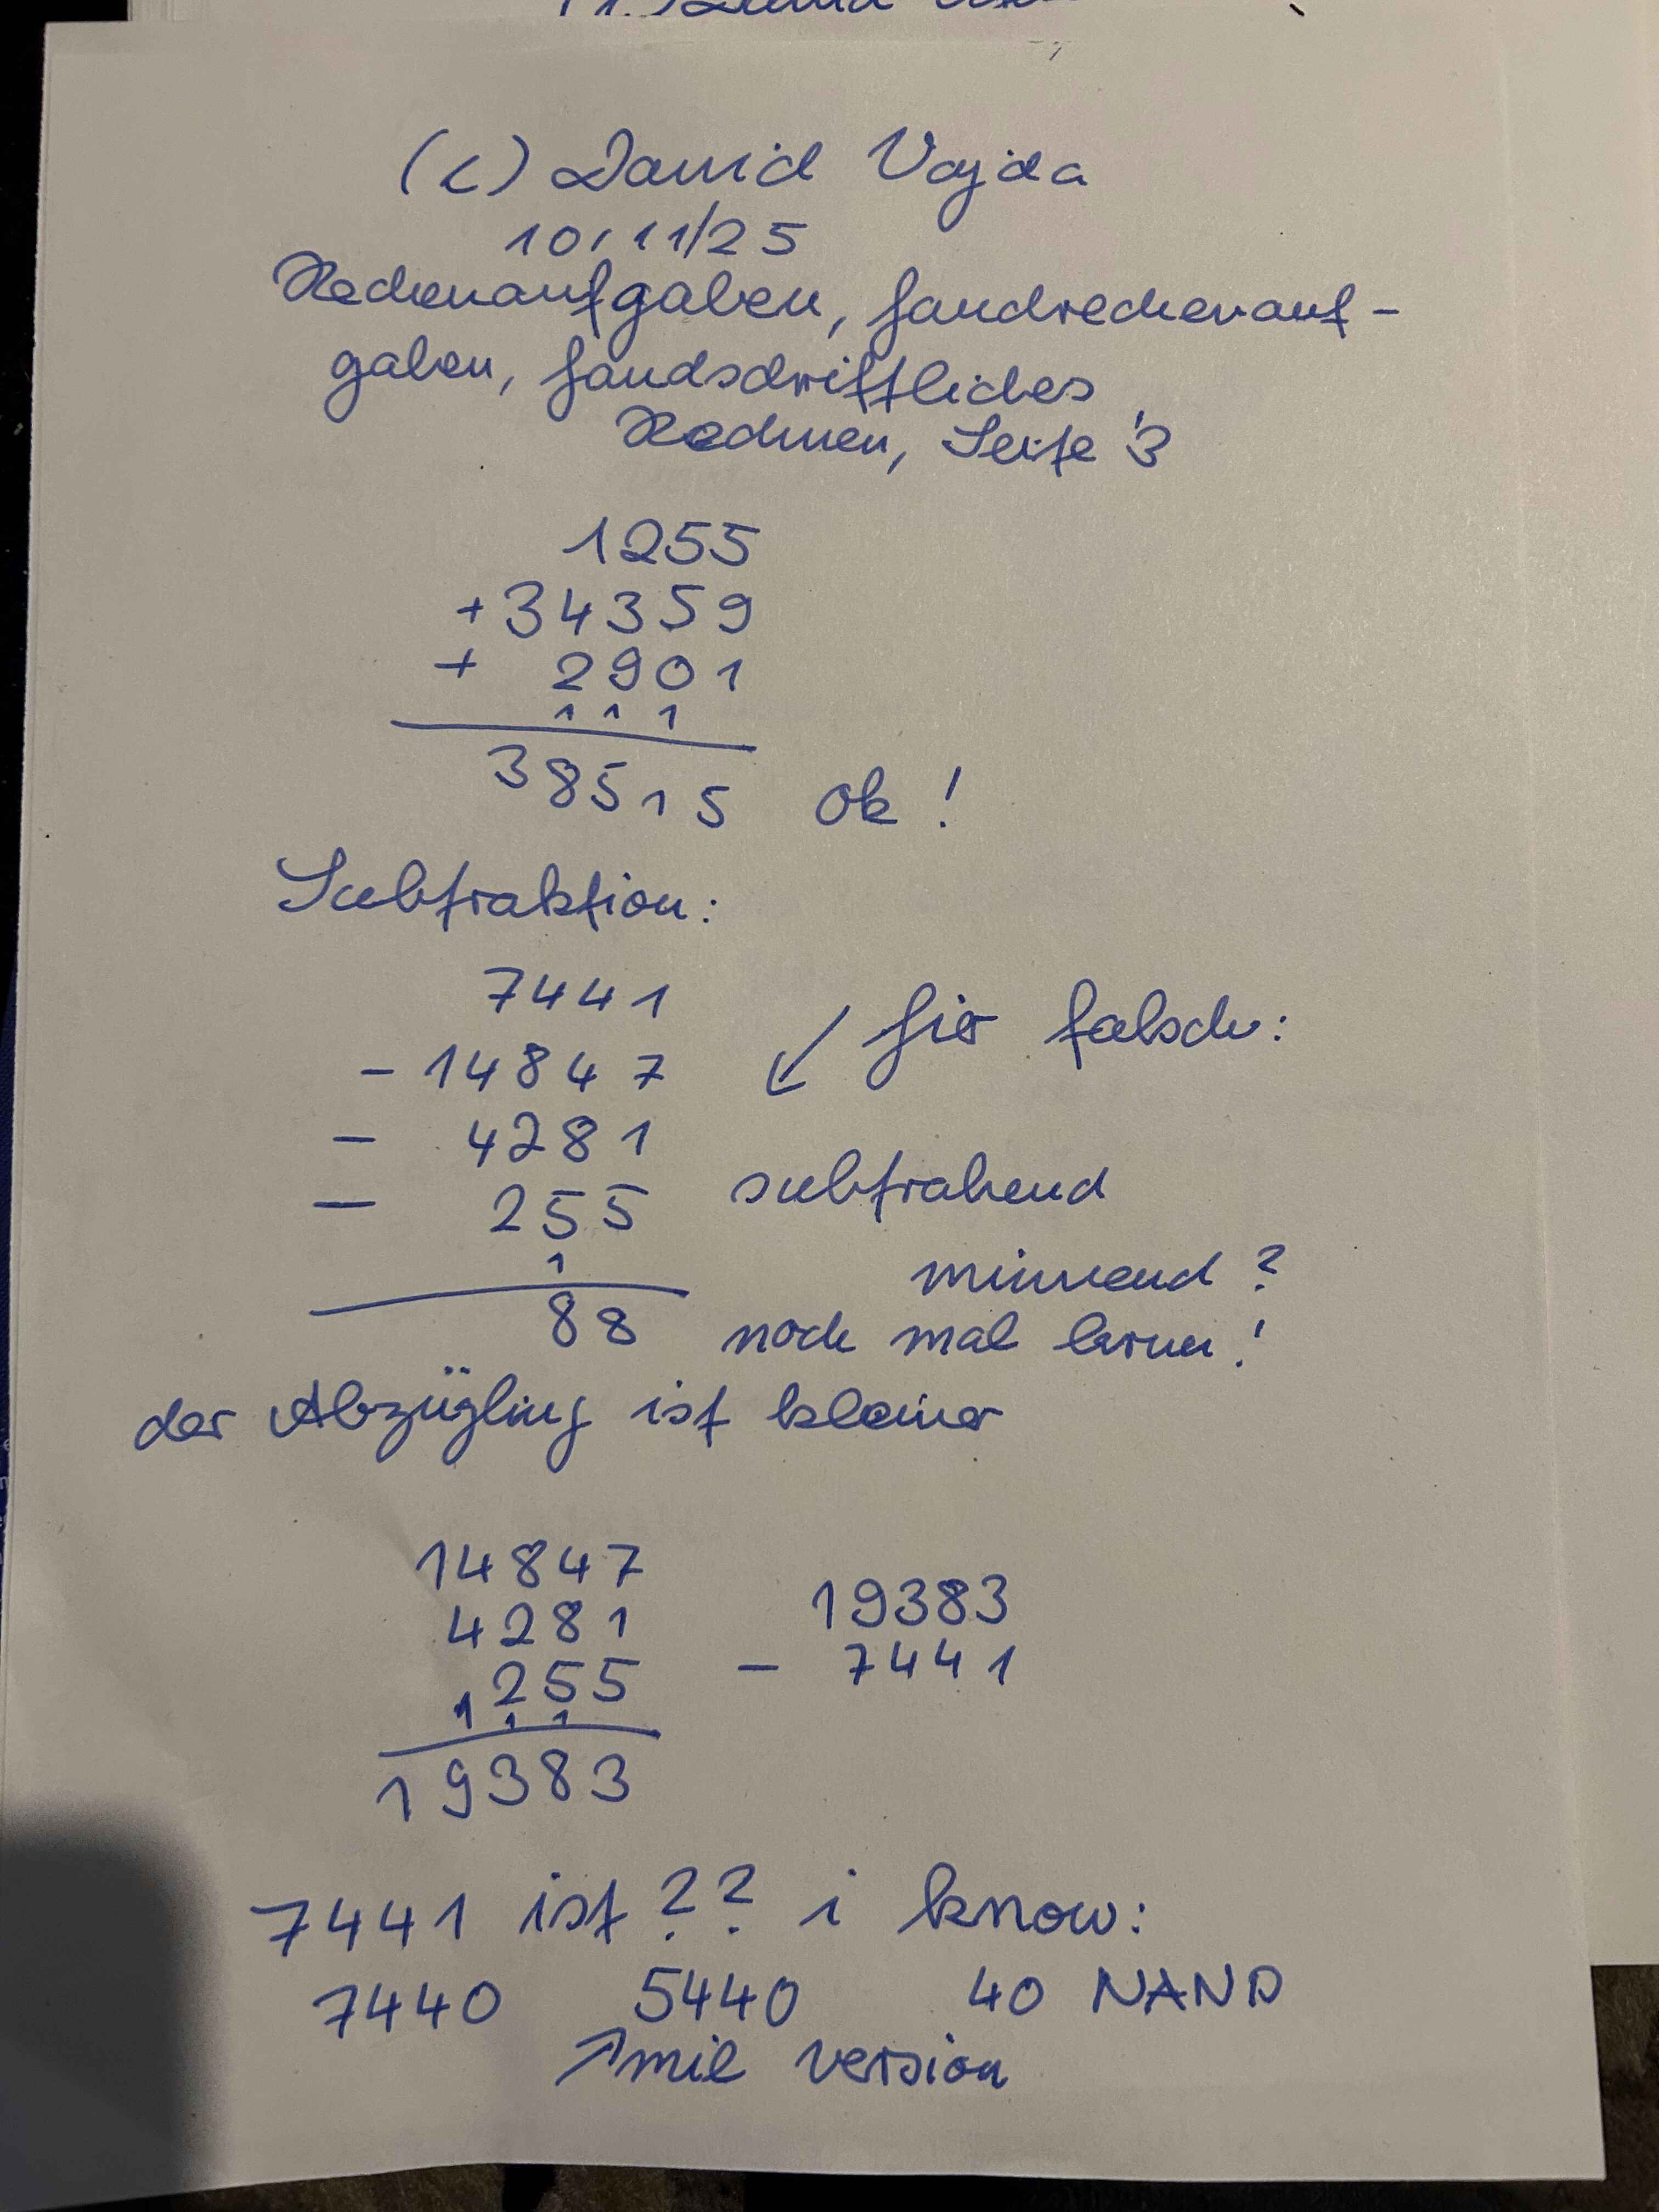 (c) David Vajda
10/11/25
Rechenaufgaben, Handrechenauf-
gaben, Handschriftliches
Rechnen, Seite 3
1255
+34359
+ 2901
1 1 1
38515 ok!
Subtraktion:
7441
- 14847
- 4281
- 255
1
88
hier falsch:
subtrahend
minuend?
noch mal lernen!
der Abzügling ist kleiner
14847
4281
255
1 1 1
19383
19383
- 7441
7441 ist ?? i know:
7440 5440 40 NAND
mil version